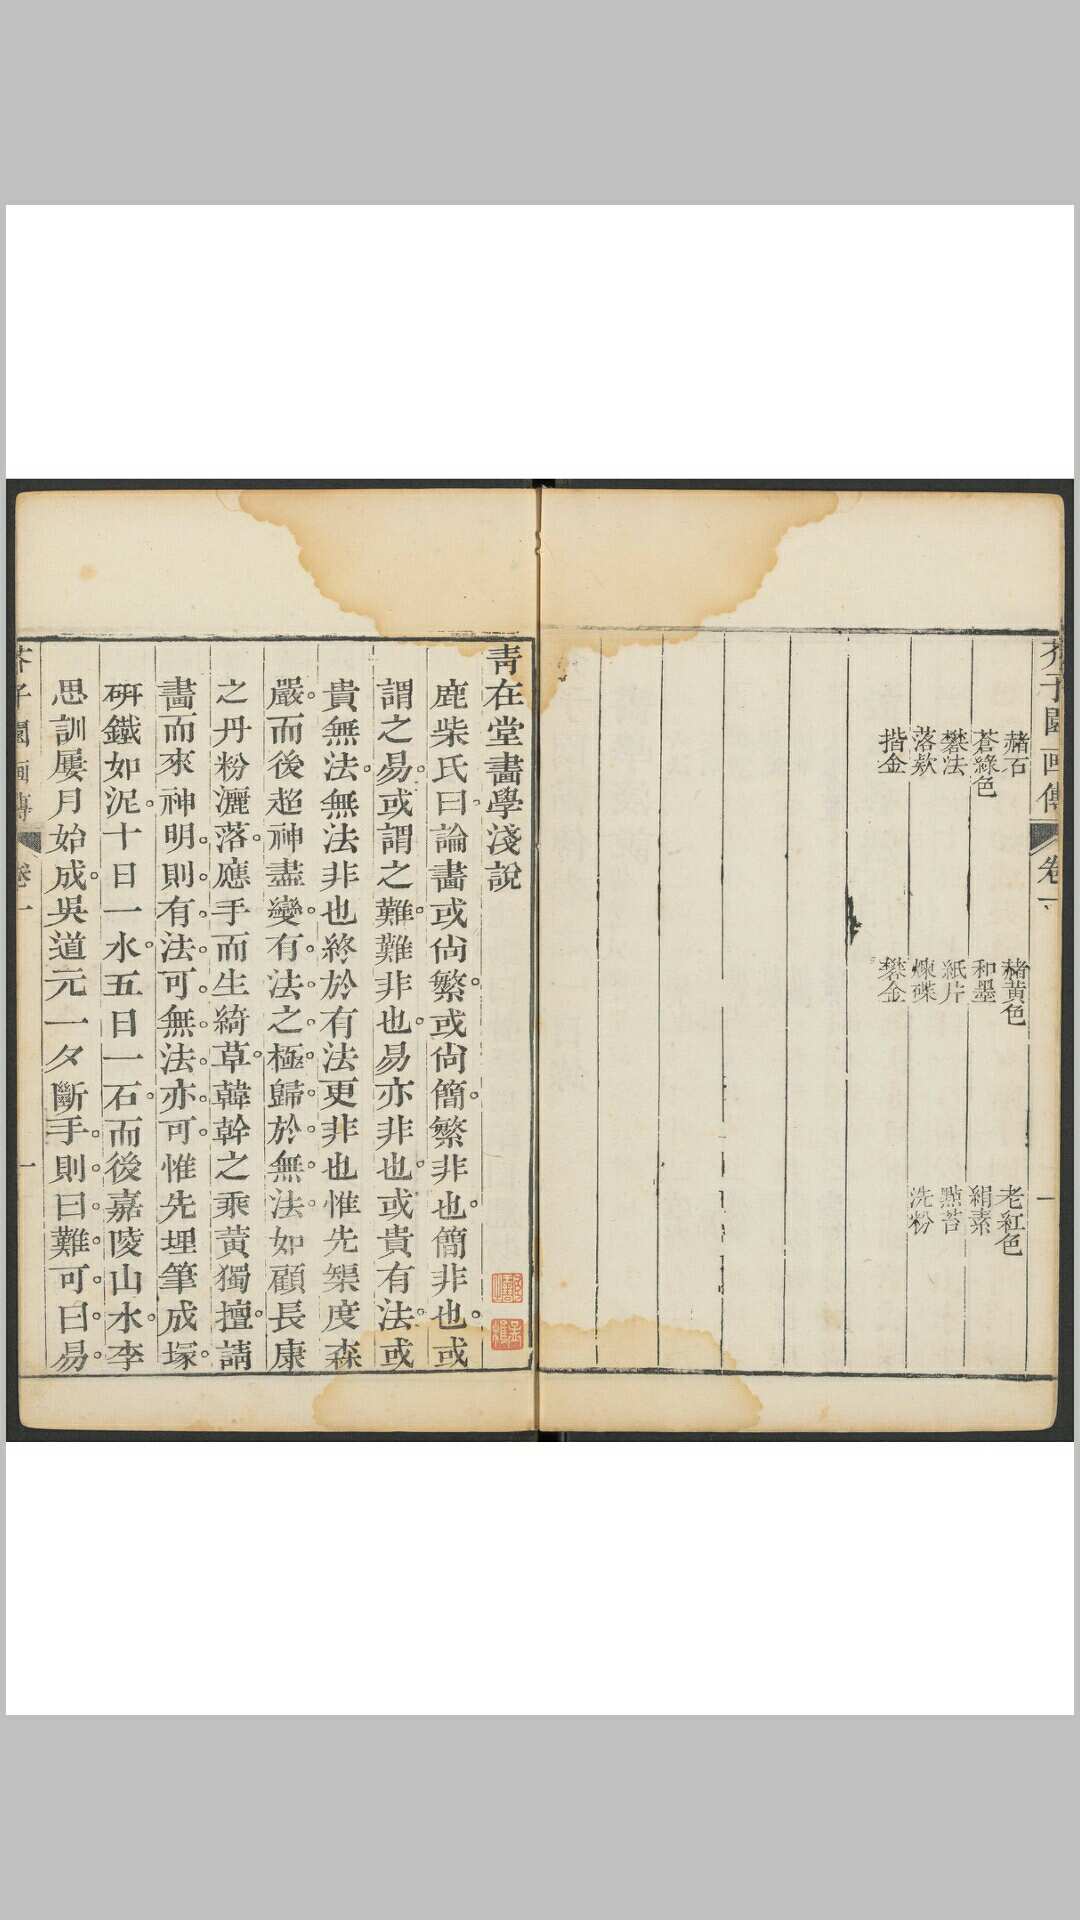 芥子園画傳 卷一 一
赭石 赭黃色 老紅色
蒼綠色 和墨 絹素
礬法 紙片 㸃苔
落欵 煉碟 洗粉
揩金 礬金
青在堂畵學淺說
鹿柴氏曰。論畵或尚繁。或尚簡。繁非也。簡非也。或
謂之易。或謂之難。難非也。易亦非也。或貴有法。或
貴無法。無法非也。終於有法更非也。惟先榘度森
嚴。而後超神盡變。有法。之。極。歸。於。無。法。如顧長康
之丹粉灑落。應手而生綺草。韓幹之乘黃獨擅。請
畵而來神明。則。有。法。可。無。法。亦。可。惟先埋筆成塚。
硏鐵如泥。十日一水。五日一石。而後嘉陵山水。李
思訓屢月始成。吳道元一夕斷手。則。曰。難。可。曰。易。
芥子園画傳 卷一 一